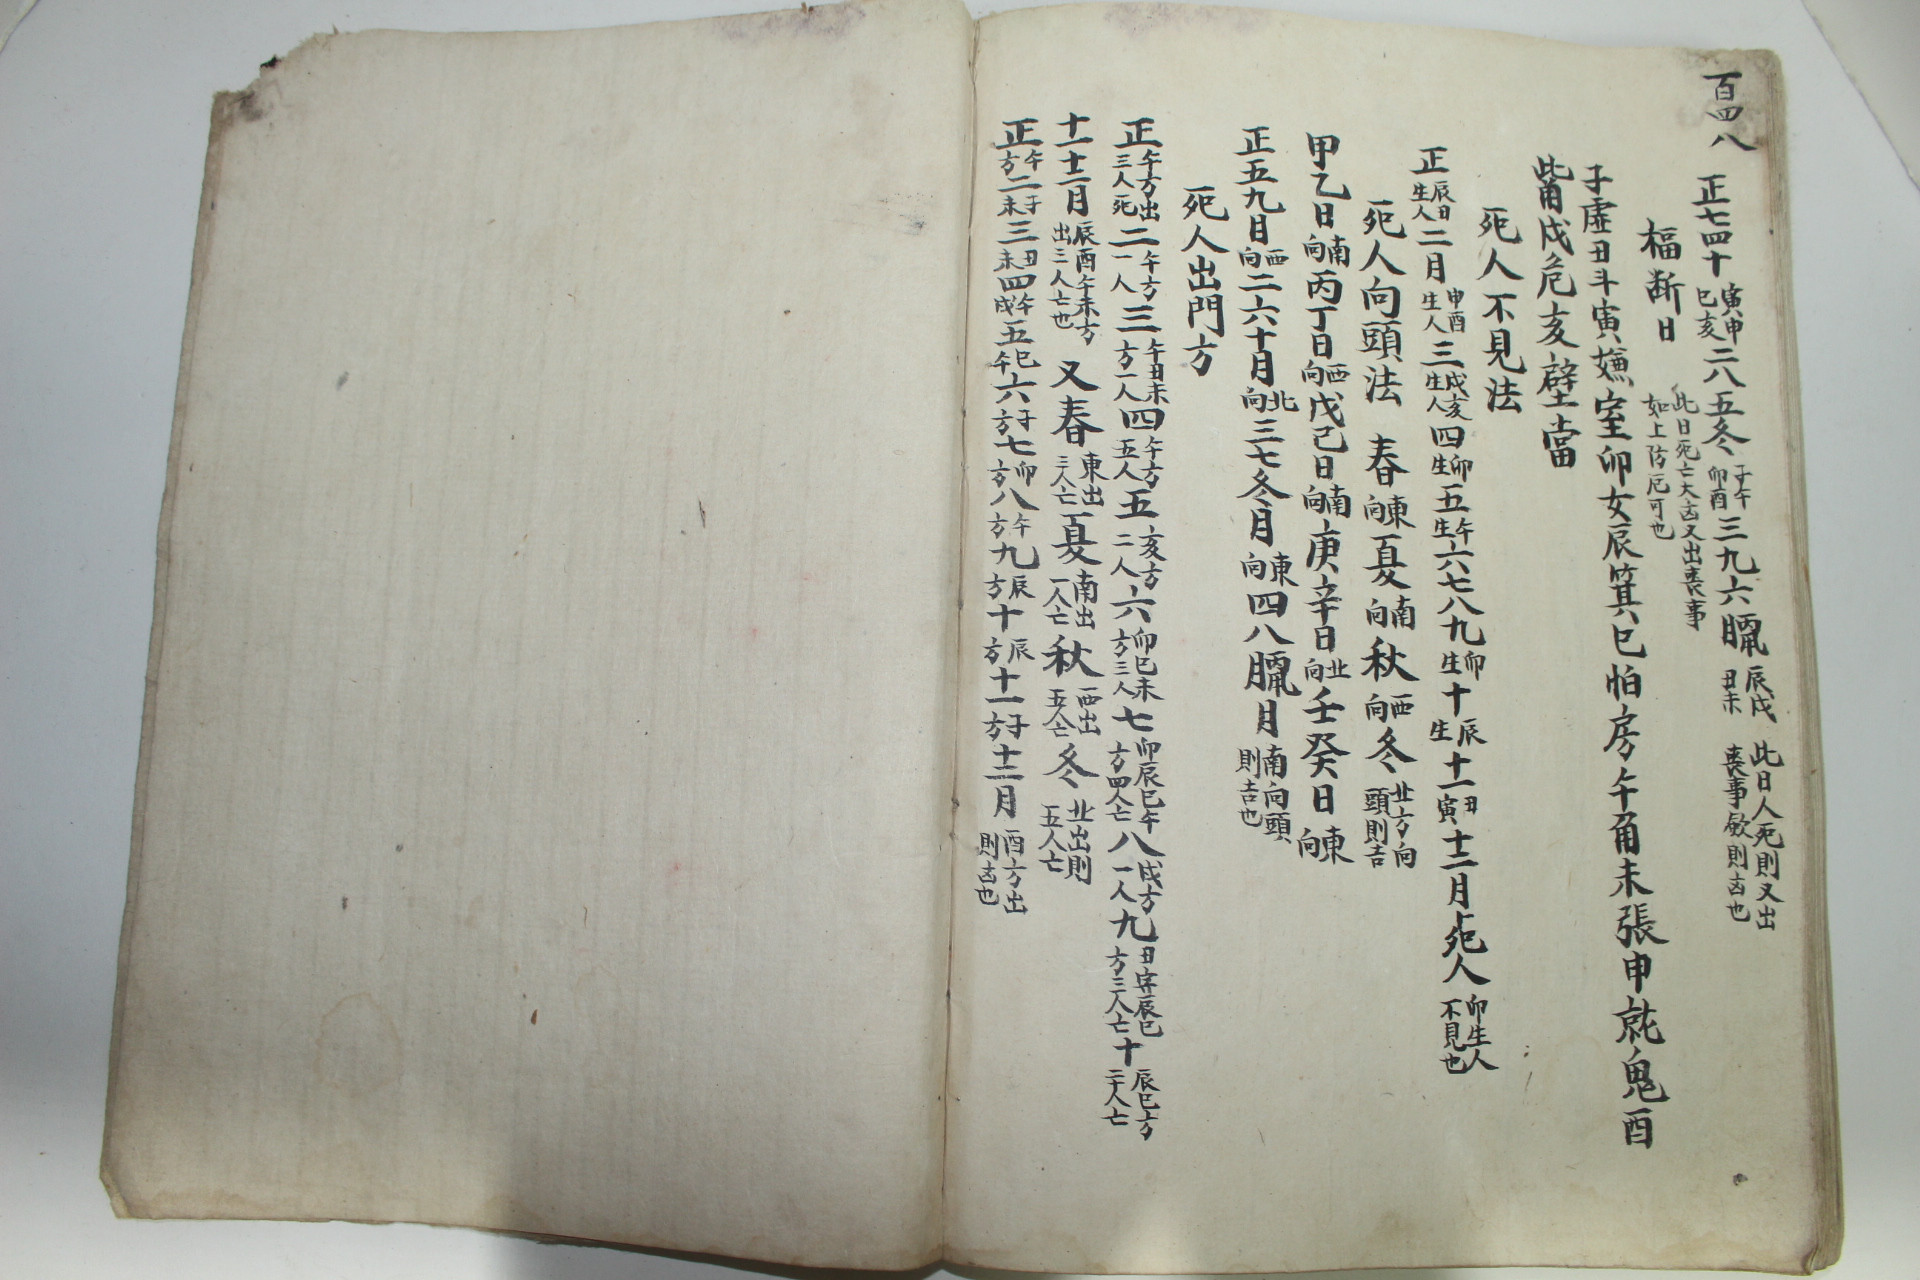 百四八
正七四十寅申巳亥二八五冬子午卯酉三九六臘辰戌丑未 此日人死則又出喪事欲則凶也
福断日 此日死亡大凶又出喪事如上防厄可也
子虛丑斗寅嫌室卯女辰箕巳怕房午角未張申就鬼酉
觜戌危亥壁當
死人不見法
正辰丑生人二月申酉生人三戌亥生人四卯生五午生六七八九卯生十辰生十一丑寅十二月上死人卯生人不見也
死人向頭法 春東向夏南向秋西向冬北方向頭則吉
甲乙日南向丙丁日西向戊己日南向庚辛日北向壬癸日東向
正五九月西向二六十月北向三七冬月東向四八臘月南向頭則吉也
死人出門方
正午方出三人死二午方一人三午丑未方一人四午方五人五亥方二人六卯巳未方三人七卯辰巳午方四人亡八戌方一人九丑寅辰巳方三人亡十辰巳方二十人亡
十一十二月辰酉午未方出三人亡也 又春東出三人亡夏南出一人亡秋西出五人亡冬北出則五人亡
正午方二子未三丑未四午戌五巳午六子方七卯方八午方九辰方十辰方十一子方十二月酉方出則凶也